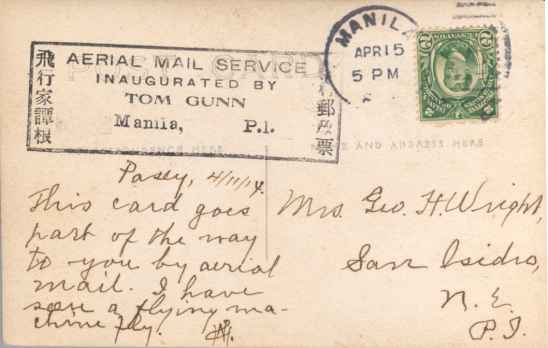 飛行家譚根
AERIAL MAIL SERVICE
INAUGURATED BY
TOM GUNN
Manila, P.I.
郵政票
MANILA
APR 15
5 PM
NAME AND ADDRESS HERE
Pasay, 4/11/14.
This card goes
part of the way
to you by aerial
mail. I have
seen a flying ma-
chine fly.
Mrs. Geo. H. Wright,
San Isidro,
N. E.
P. I.